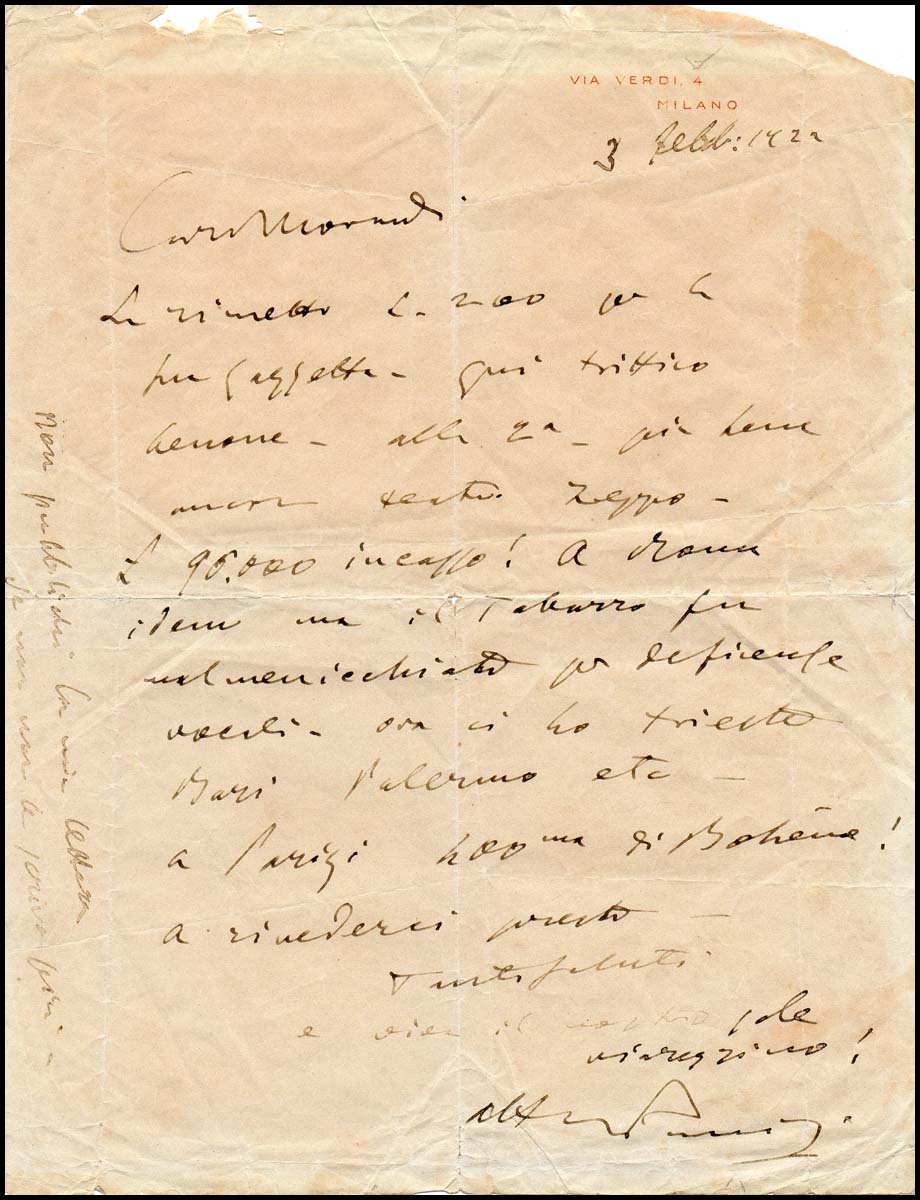 VIA VERDI, 4
MILANO
3 febb: 1922
Caro Morandi
Le rimetto L. 200 per la
sua gazzetta - qui trittico
benone - alla 2a - più bene
ancora teatro zeppo -
L 96.000 incasso! A Roma
idem ma il Tabarro fu
malmenicchiato per deficienze
vocali - ora ci ho Trieste
Bari Palermo etc -
a Parigi 400ma di Bohème!
a rivederci presto -
Tanti saluti
e viva il nostro sole
viareggino!
Puccini
Non pubblichi la mia lettera
se no non le scrivo più -